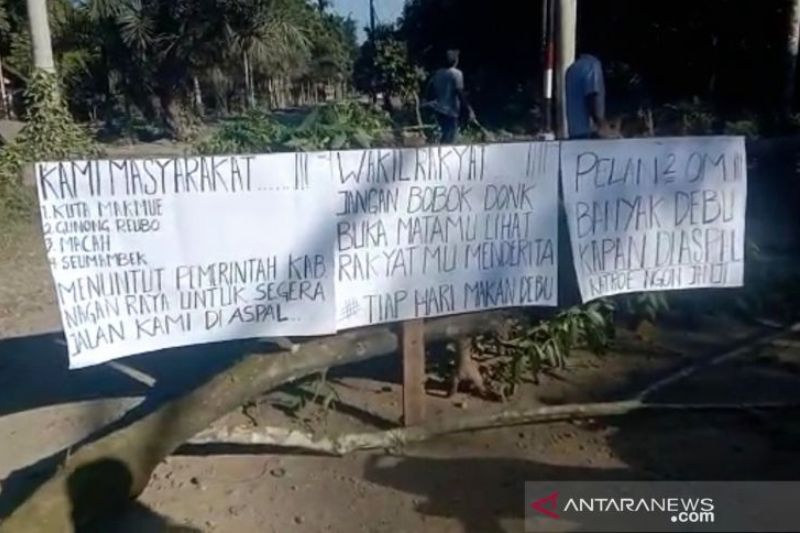 KAMI MASYARAKAT ...... !!!
1. KUTA MAKMUE
2. GUNONG REUBO
3. MACAH
4. SEUMAMBEK
MENUNTUT PEMERINTAH KAB.
NAGAN RAYA UNTUK SEGERA
JALAN KAMI DI ASPAL...
WAKIL RAKYAT ... !!!!
JANGAN BOBOK DONK
BUKA MATAMU LIHAT
RAKYAT MU MENDERITA
# TIAP HARI MAKAN DEBU
PELAN2 OM !!!
BANYAK DEBU
KAPAN DIASPAL
KATROE NGON JANJI
ANTARANEWS
.com